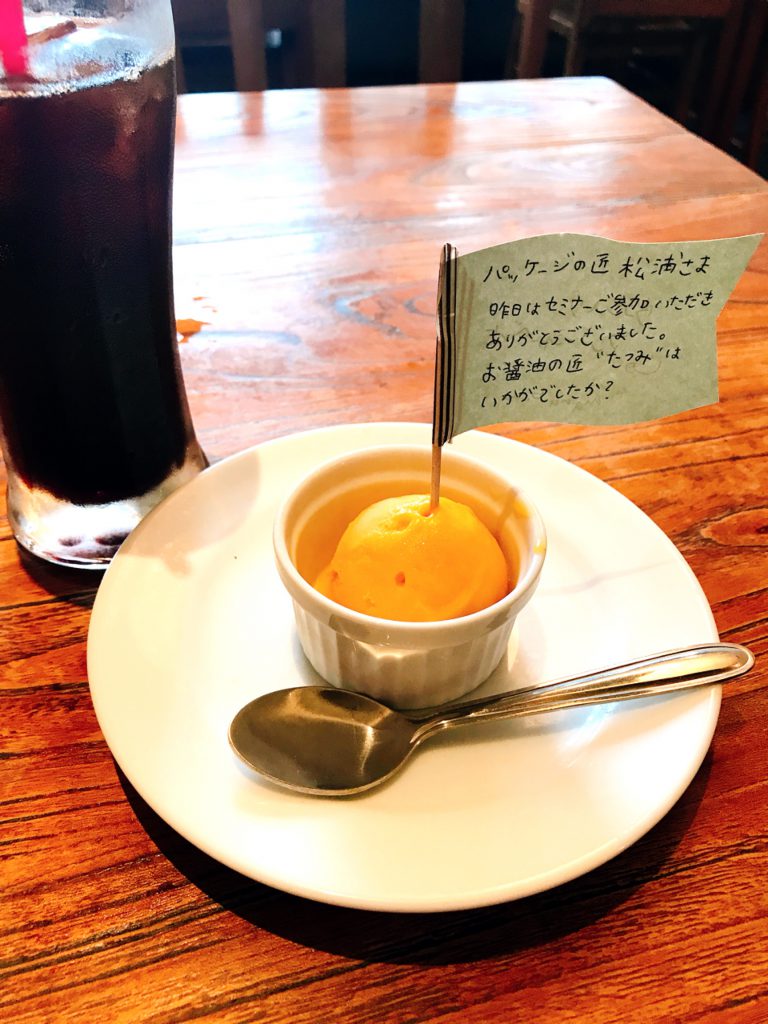 パッケージの匠 松浦さま
昨日はセミナーご参加いただき
ありがとうございました。
お醤油の匠 "たつみ"は
いかがでしたか?